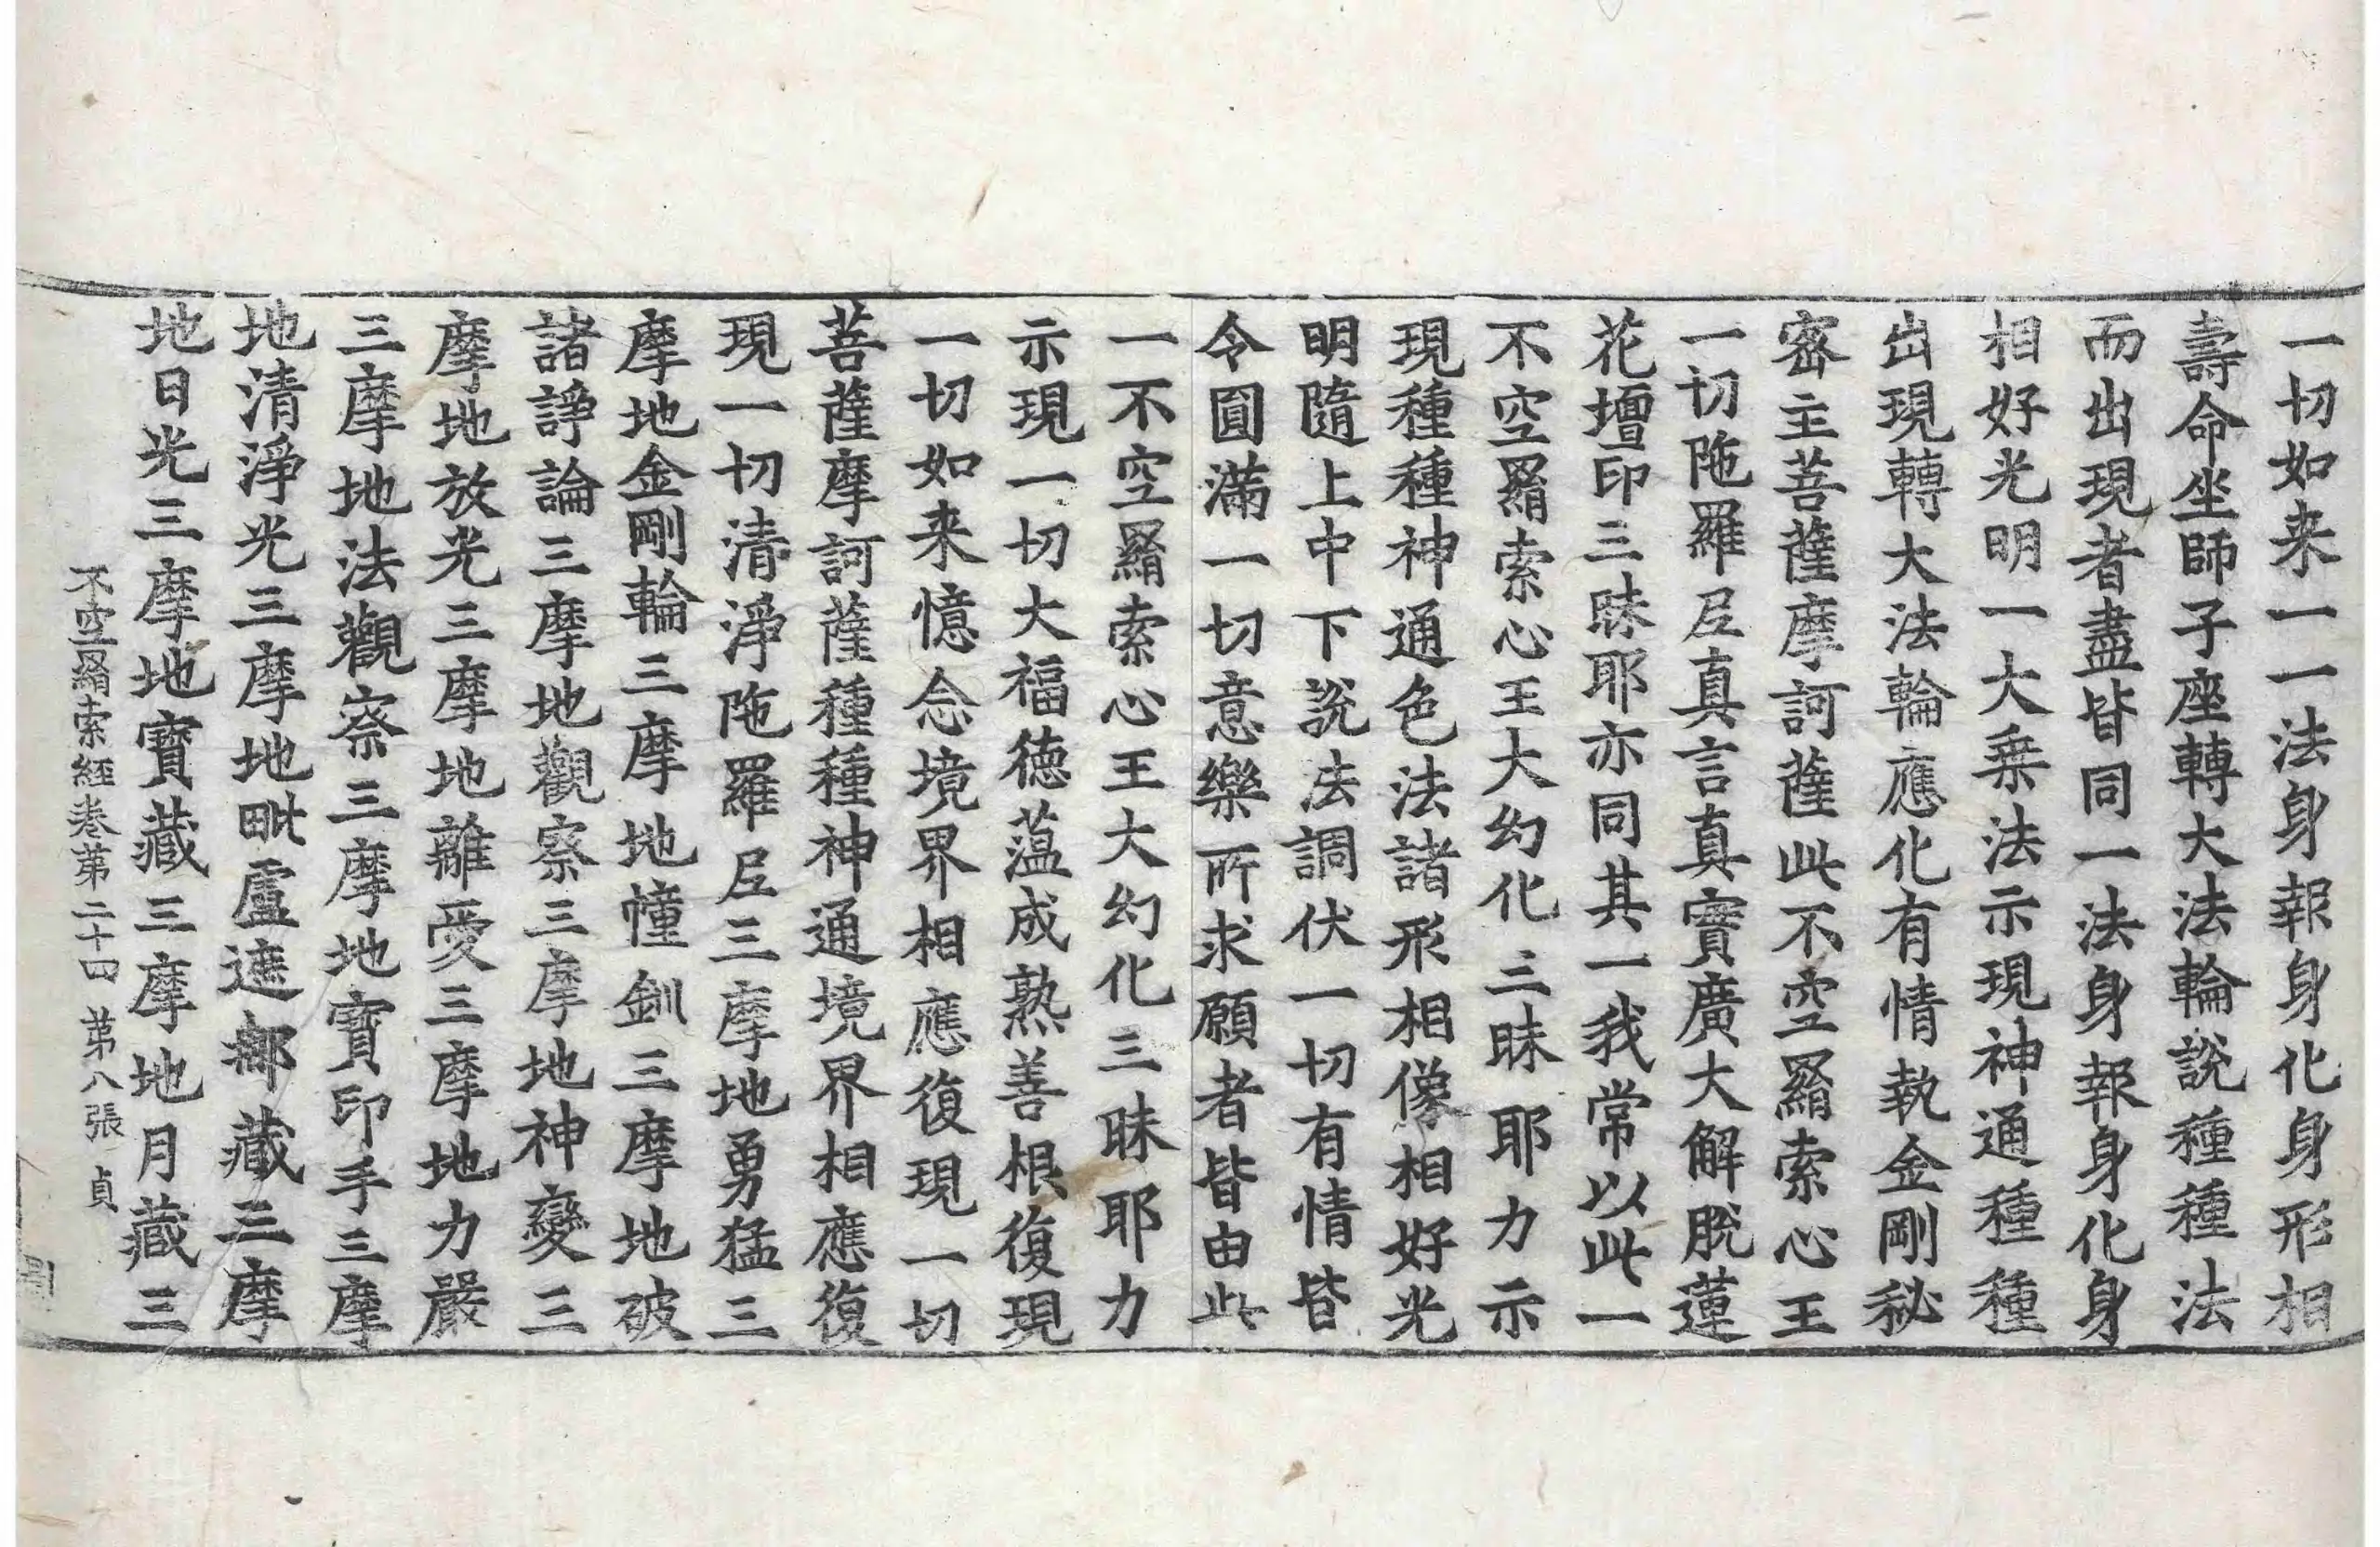 一切如来一一法身報身化身形相
壽命坐師子座轉大法輪說種種法
而出現者盡皆同一法身報身化身
相好光明一大乗法示現神通種種
出現轉大法輪應化有情執金剛秘
密主菩薩摩訶薩此不空羂索心王
一切陁羅𡰱真言真實廣大解脫蓮
花壇印三昧耶亦同其一我常以此一
不空羂索心王大幻化三昧耶力示
現種種神通色法諸形相像相好光
明隨上中下說法調伏一切有情皆
令圓滿一切意樂所求願者皆由此
一不空羂索心王大幻化三昧耶力
示現一切大福徳薀成熟善根復現
一切如来憶念境界相應復現一切
菩薩摩訶薩種種神通境界相應復
現一切清淨陁羅𡰱三摩地勇猛三
摩地金剛輪三摩地幢釧三摩地破
諸諍論三摩地觀察三摩地神變三
摩地放光三摩地離愛三摩地力嚴
三摩地法觀察三摩地寶印手三摩
地清淨光三摩地毗盧遮那藏三摩
地日光三摩地寶藏三摩地月藏三
不空羂索經卷第二十四 第八張 貞